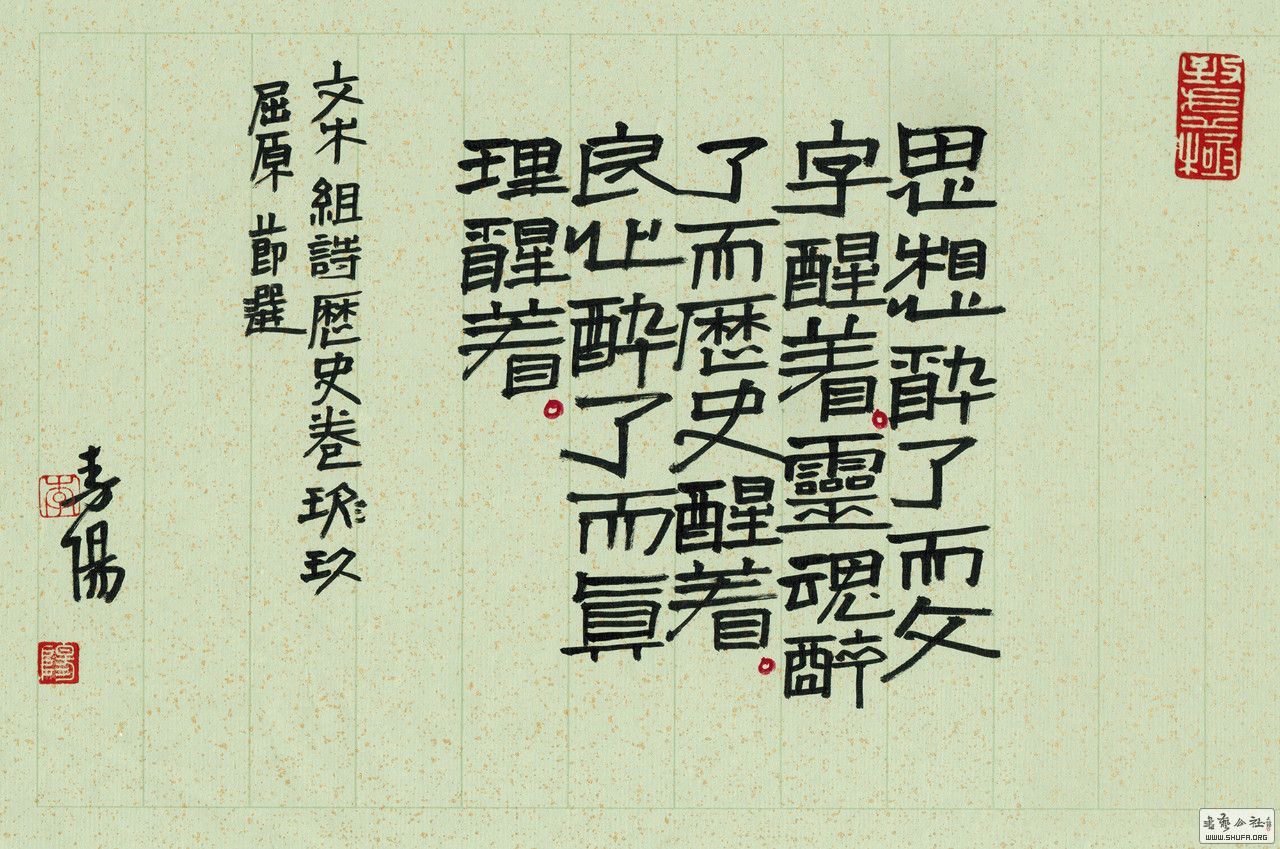 思想醉了而文
字醒着。靈魂醉
了而歷史醒着。
良心醉了而眞
理醒着。
文木 組詩歷史卷 玖
屈原 節選
陽
WWW.SHUFA.ORG